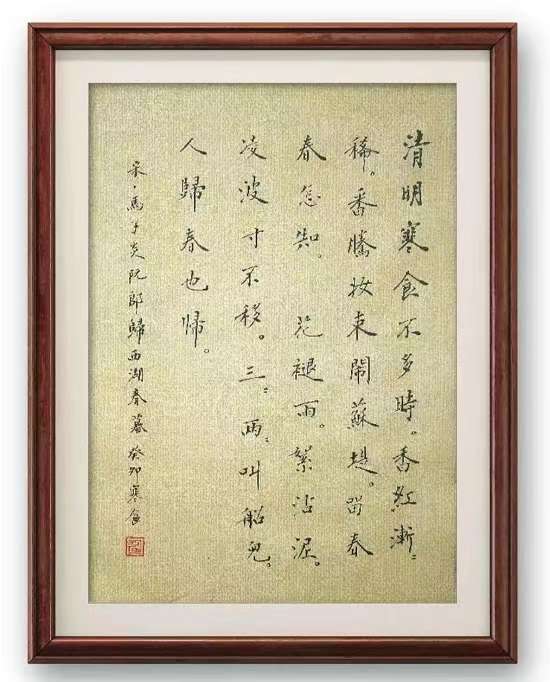 清明寒食不多時。香紅漸〻
稀。番騰妝束鬧蘇堤。留春
春怎知。花褪雨。絮沾泥。
凌波寸不移。三〻兩〻叫船兒。
人歸春也歸。
宋·馬子炎阮郎歸西湖春暮 癸卯寒食